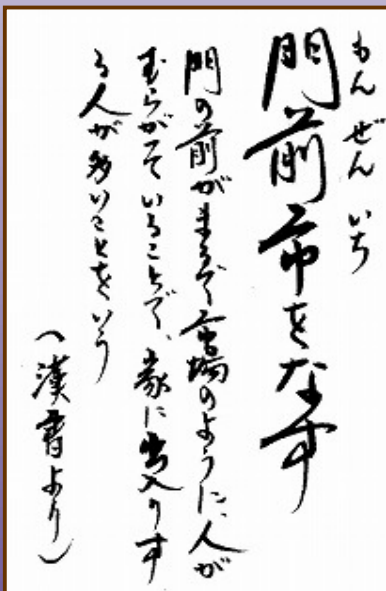 もん ぜん いち
門前市をなす
門の前がまるで市場のように、人が
むらがっていることで、家に出入りす
る人が多いことをいう
(漢書より)